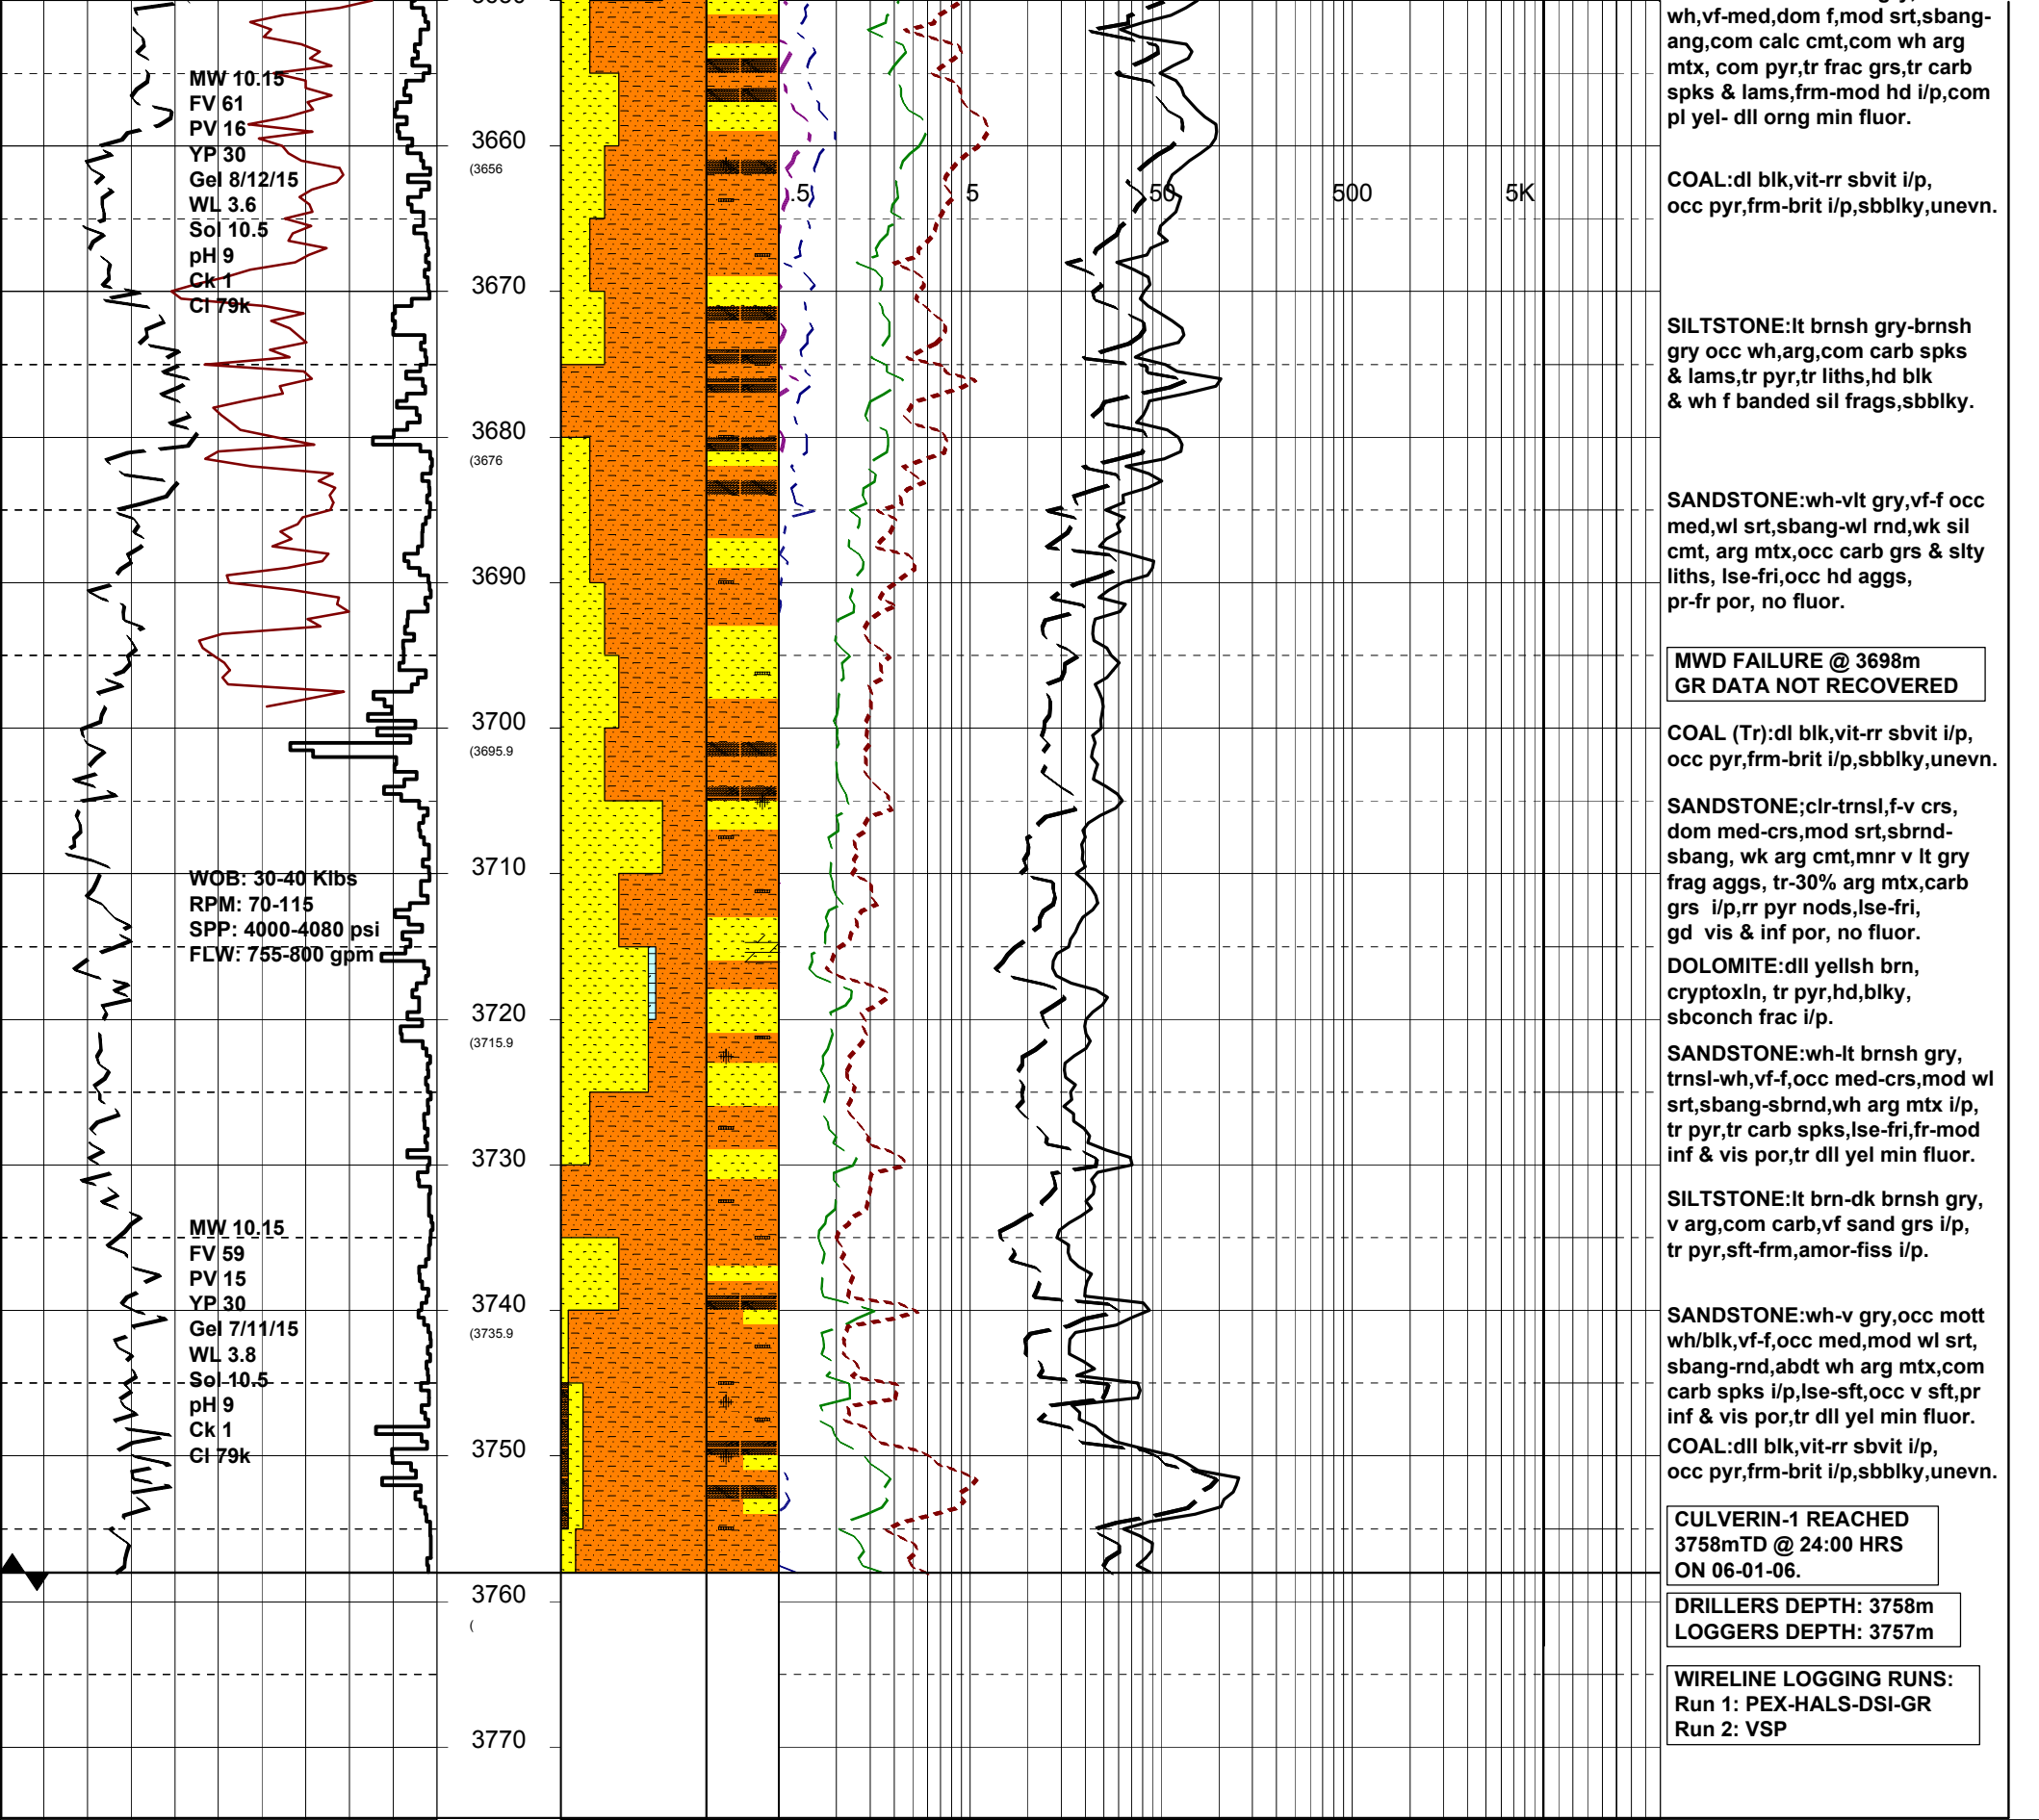 MW 10.15
FV 61
PV 16
YP 30
Gel 8/12/15
WL 3.6
Sol 10.5
pH 9
Ck 1
Cl 79k
WOB: 30-40 Klbs
RPM: 70-115
SPP: 4000-4080 psi
FLW: 755-800 gpm
MW 10.15
FV 59
PV 15
YP 30
Gel 7/11/15
WL 3.8
Sol 10.5
pH 9
Ck 1
Cl 79k
3660
(3656
3670
3680
(3676
3690
3700
(3695.9
3710
3720
(3715.9
3730
3740
(3735.9
3750
3760
(
3770
.5 5 50 500 5K
wh,vf-med,dom f,mod srt,sbang-
ang,com calc cmt,com wh arg
mtx, com pyr,tr frac grs,tr carb
spks & lams,frm-mod hd i/p,com
pl yel- dll orng min fluor.
COAL:dl blk,vit-rr sbvit i/p,
occ pyr,frm-brit i/p,sbblky,unevn.
SILTSTONE:lt brnsh gry-brnsh
gry occ wh,arg,com carb spks
& lams,tr pyr,tr liths,hd blk
& wh f banded sil frags,sbblky.
SANDSTONE:wh-vlt gry,vf-f occ
med,wl srt,sbang-wl rnd,wk sil
cmt, arg mtx,occ carb grs & slty
liths, lse-fri,occ hd aggs,
pr-fr por, no fluor.
MWD FAILURE @ 3698m
GR DATA NOT RECOVERED
COAL (Tr):dl blk,vit-rr sbvit i/p,
occ pyr,frm-brit i/p,sbblky,unevn.
SANDSTONE;clr-trnsl,f-v crs,
dom med-crs,mod srt,sbrnd-
sbang, wk arg cmt,mnr v lt gry
frag aggs, tr-30% arg mtx,carb
grs i/p,rr pyr nods,lse-fri,
gd vis & inf por, no fluor.
DOLOMITE:dll yellsh brn,
cryptoxln, tr pyr,hd,blky,
sbconch frac i/p.
SANDSTONE:wh-lt brnsh gry,
trnsl-wh,vf-f,occ med-crs,mod wl
srt,sbang-sbrnd,wh arg mtx i/p,
tr pyr,tr carb spks,lse-fri,fr-mod
inf & vis por,tr dll yel min fluor.
SILTSTONE:lt brn-dk brnsh gry,
v arg,com carb,vf sand grs i/p,
tr pyr,sft-frm,amor-fiss i/p.
SANDSTONE:wh-v gry,occ mott
wh/blk,vf-f,occ med,mod wl srt,
sbang-rnd,abdt wh arg mtx,com
carb spks i/p,lse-sft,occ v sft,pr
inf & vis por,tr dll yel min fluor.
COAL:dll blk,vit-rr sbvit i/p,
occ pyr,frm-brit i/p,sbblky,unevn.
CULVERIN-1 REACHED
3758mTD @ 24:00 HRS
ON 06-01-06.
DRILLERS DEPTH: 3758m
LOGGERS DEPTH: 3757m
WIRELINE LOGGING RUNS:
Run 1: PEX-HALS-DSI-GR
Run 2: VSP